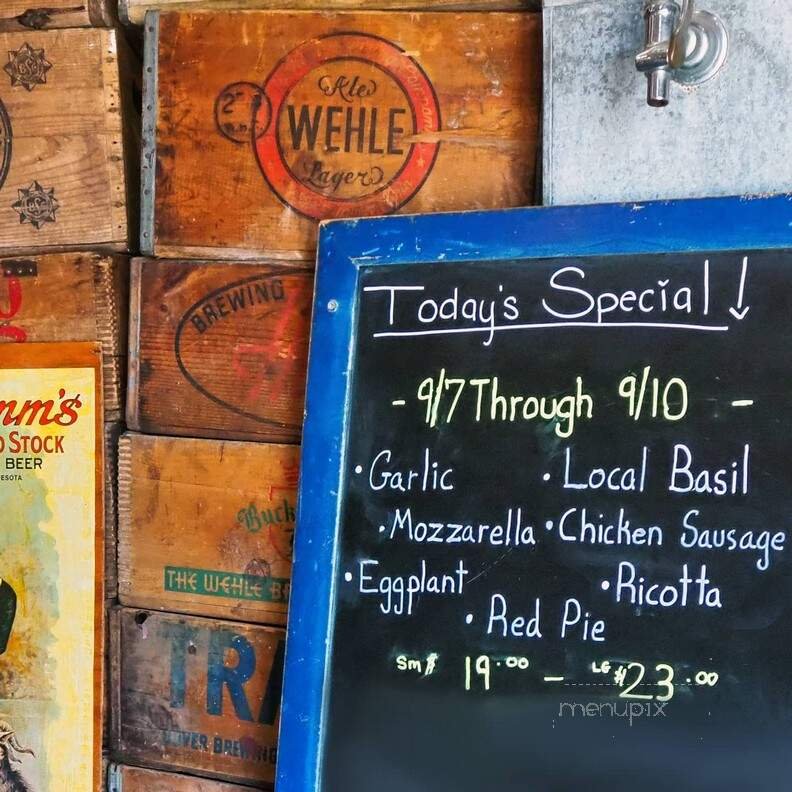 Ale
2
WEHLE
Lager
BREWING
mm's
D STOCK
BEER
ESOTA
Buck
THE WEHLE B
TRA
BREWING
Today's Special
- 9/7 Through 9/10 -
• Garlic • Local Basil
• Mozzarella • Chicken Sausage
• Eggplant • Ricotta
• Red Pie
Sm $ 19.00 - LG $23.00
menupix